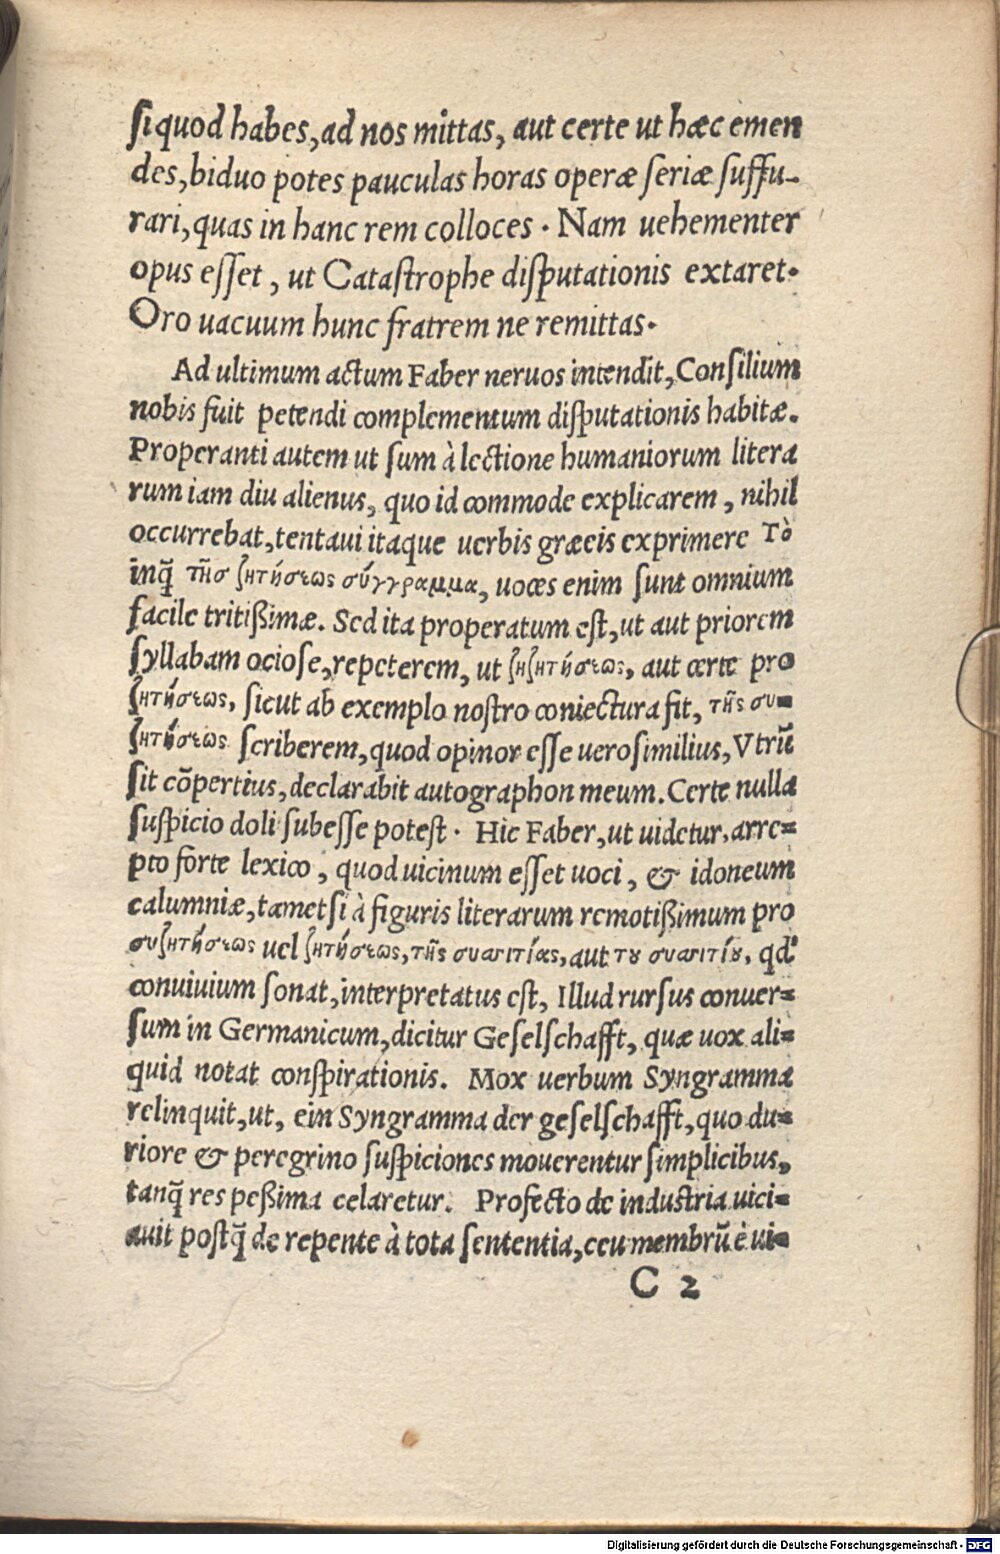 si quod habes, ad nos mittas, aut certe ut hæc emen
des, biduo potes pauculas horas operæ seriæ suffu-
rari, quas in hanc rem colloces. Nam uehementer
opus esset, ut Catastrophe disputationis extaret.
Oro uacuum hunc fratrem ne remittas.
Ad ultimum actum Faber neruos intendit, Consilium
nobis fuit petendi complementum disputationis habitæ.
Properanti autem ut sum à lectione humaniorum litera
rum iam diu alienus, quo id commode explicarem, nihil
occurrebat, tentaui itaque uerbis græcis exprimere Τὸ
inq̃ τῆσ ζητήσεως σύγγραμμα, uoces enim sunt omnium
facile tritißimæ. Sed ita properatum est, ut aut priorem
syllabam ociose, repeterem, ut ζηζητήσεως, aut certe pro
ζητήσεως, sicut ab exemplo nostro coniectura fit, τῆς συ-
ζητήσεως scriberem, quod opinor esse uerosimilius, Vtrũ
sit cõpertius, declarabit autographon meum. Certe nulla
suspicio doli subesse potest. Hic Faber, ut uidetur, arre-
pto forte lexico, quod uicinum esset uoci, & idoneum
calumniæ, tametsi à figuris literarum remotißimum pro
συζητήσεως uel ζητήσεως, τῆς συσιτίας, aut τȣ συσιτίȣ, qd'
conuiuium sonat, interpretatus est, Illud rursus conuer-
sum in Germanicum, dicitur Geselschafft, quæ uox ali-
quid notat conspirationis. Mox uerbum Syngramma
relinquit, ut, ein Syngramma der geselschafft, quo du-
riore & peregrino suspiciones mouerentur simplicibus,
tanq̃ res peßima celaretur. Profecto de industria uici-
auit postq̃ de repente à tota sententia, ceu membrũ è ui-
C 2
Digitalisierung gefördert durch die Deutsche Forschungsgemeinschaft - DFG